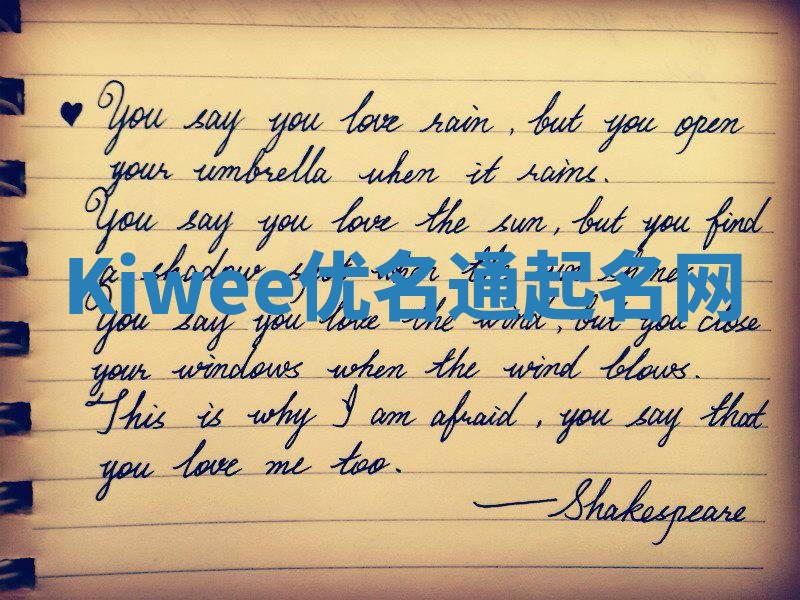 You say you love rain, but you open
your umbrella when it rains.
You say you love the sun, but you find
a shadow spot when the sun shines.
Kiwee优名通起名网
You say you love the wind, but you close
your windows when the wind blows.
This is why I am afraid, you say that
you love me too.
—Shakespeare